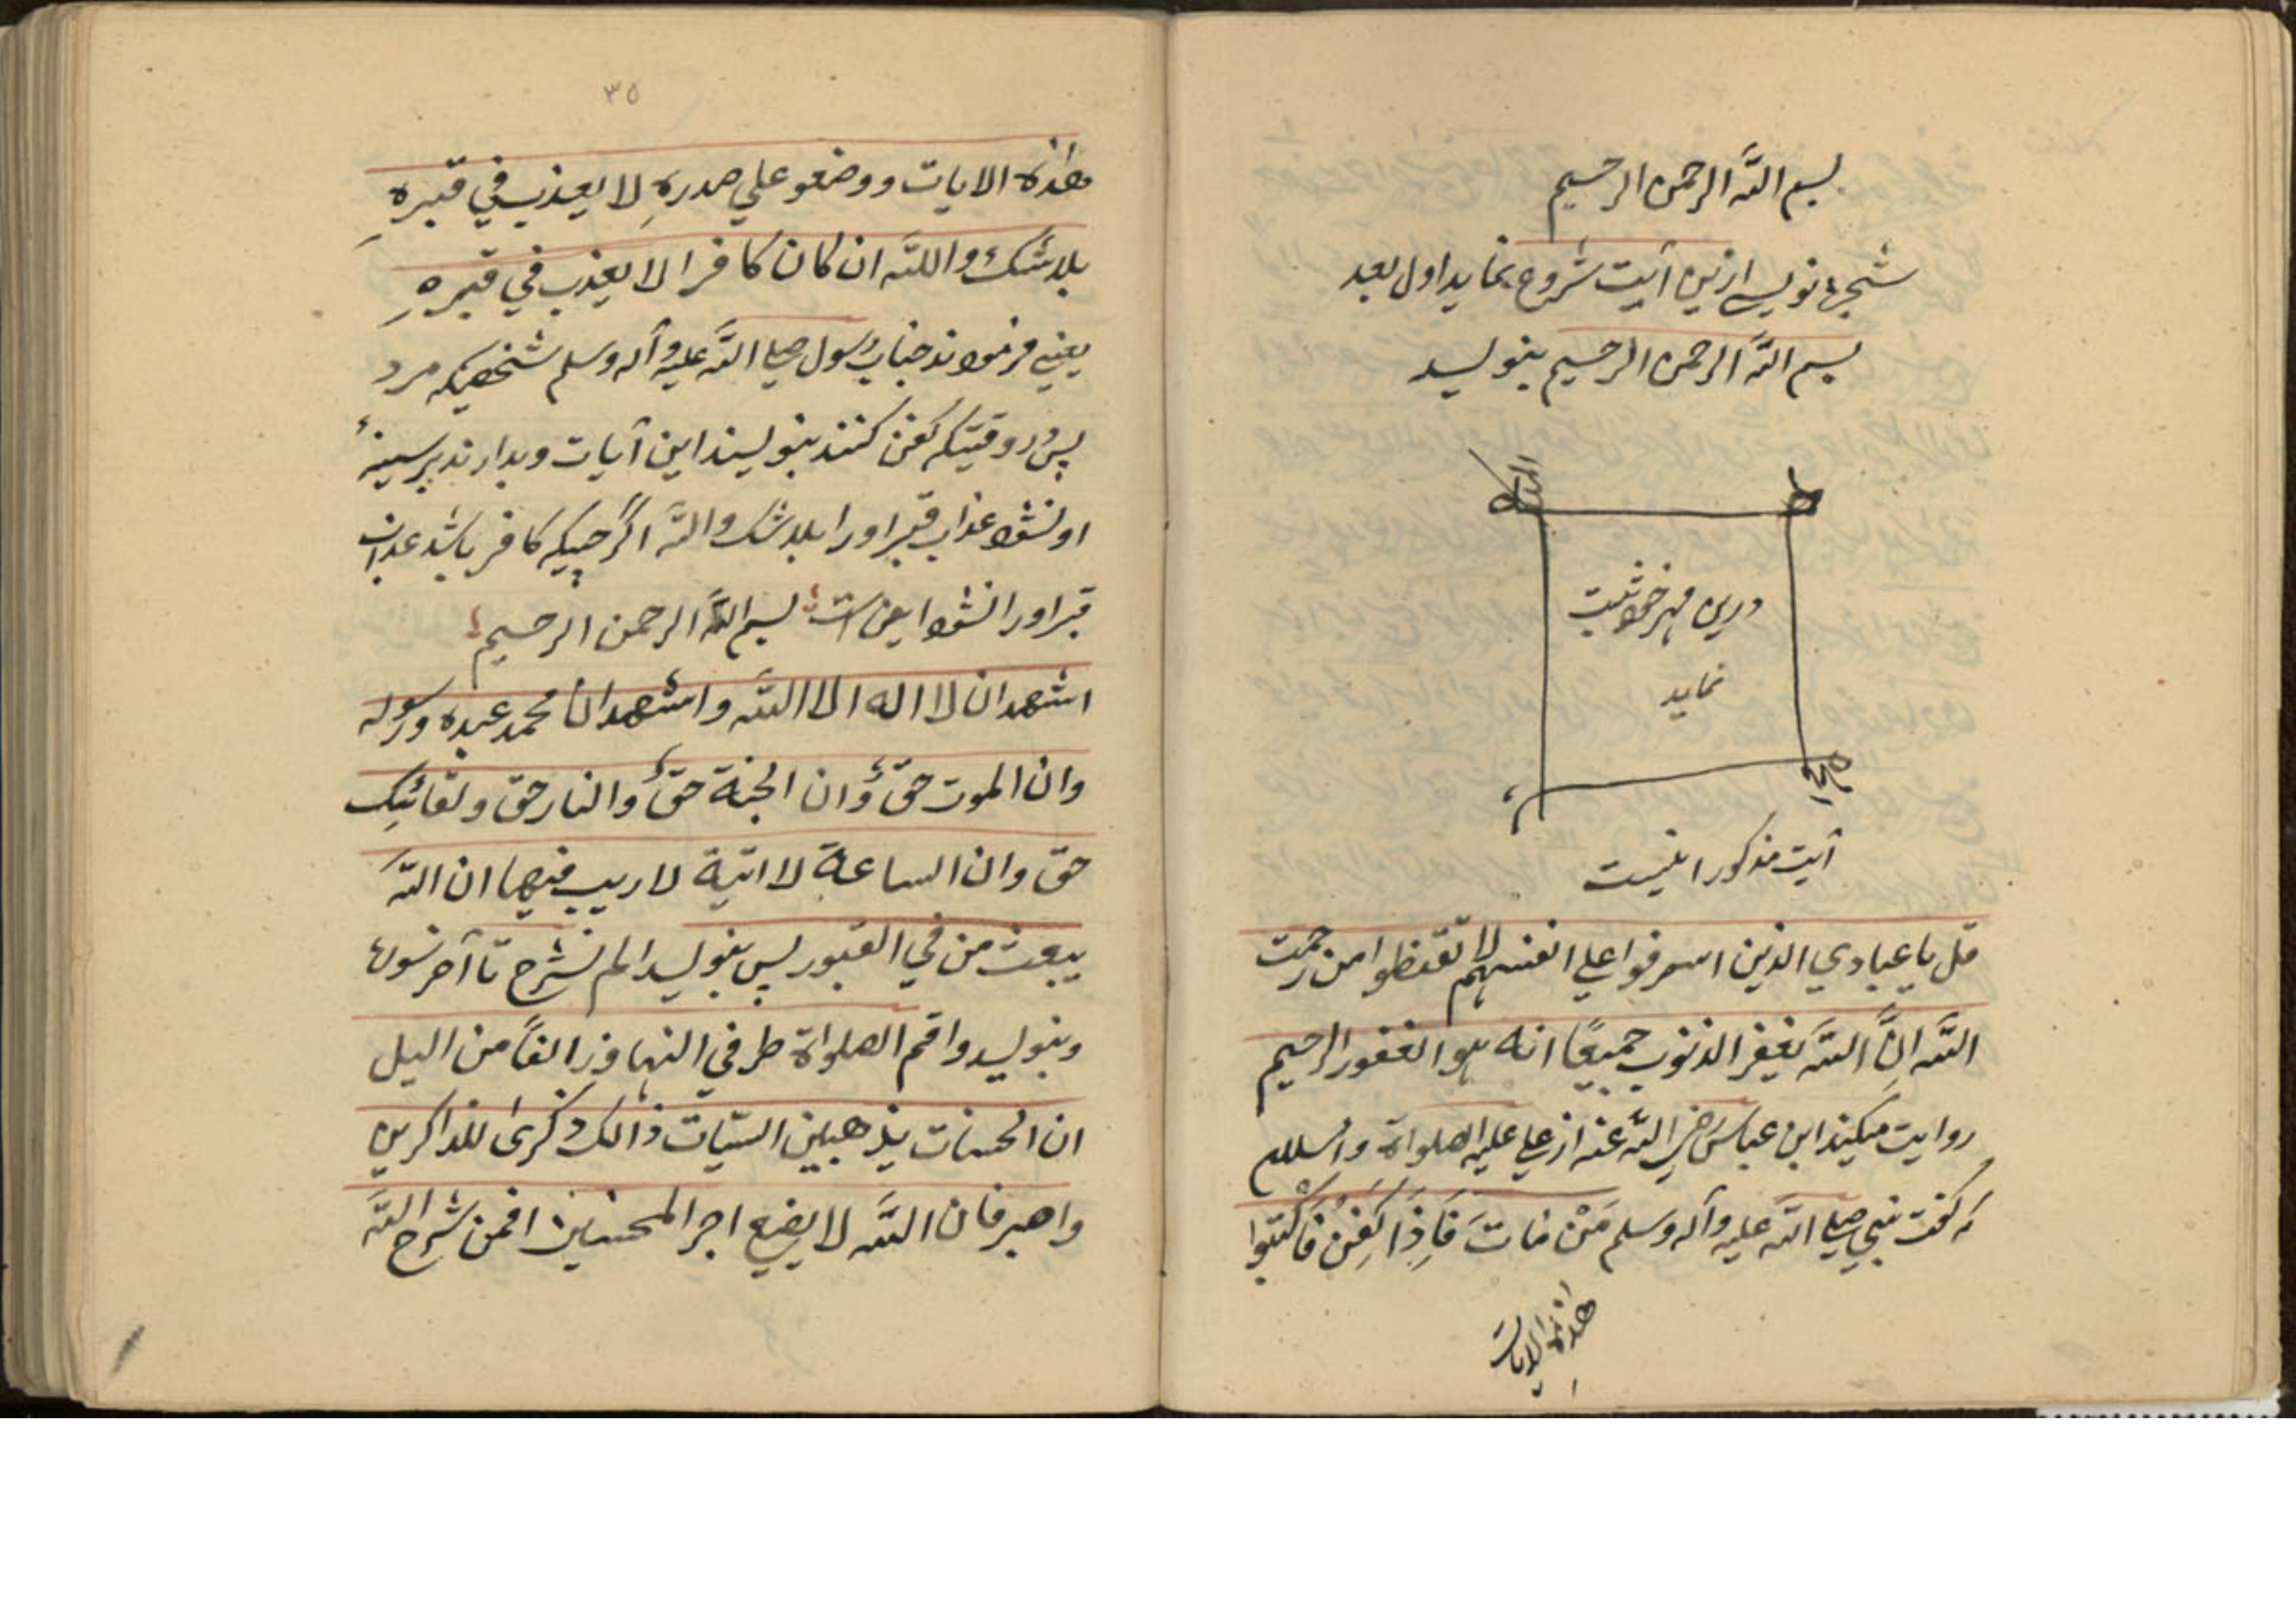 بسم الله الرحمن الرحیم
شجره نویسے ازین آیت شروع نماید اول بعد
بسم الله الرحمن الرحیم بنویسد
الله
درین مهر خود ثبت
نماید
آیت مذکور اینست
قل یا عبادي الذین اسرفوا علي انفسهم لا تقنطوا من رحمت
الله انَّ الله یغفر الذنوب جمیعًا انه هو الغفور الرحیم
روایت میکند ابن عباس رضي الله عنه از علي علیه الصلواة والسلام
که گفت نبي صلے الله علیه وآله وسلم مَنْ مَاتَ فَاِذَا کُفِنُ فَاکْتبوا
هذه الایات
۳۵
هذه الایات ووضعو علي صدرهِ لا یعذب في قبرهِ
بلا شک والله ان کان کافرا لا یعذب في قبرهِ
یعنے فرمودند جناب رسول صلے الله علیه وآله وسلم شخصیکه مرد
پس در وقتیکه کفن کنند بنویسند این آیات و بدارند بر سینهٔ
او نشود عذاب قبر او را بلا شک والله اگر چیکه کافر باشد عذاب
قبر او را نشود این است بسم الله الرحمن الرحیم
اشهد ان لا اله الا الله واشهد انَّ محمد عبده ورسوله
وان الموت حقٌ وان الجنة حقٌ والنار حق ولقائیک
حق وان الساعة لا اتیة لا ریب فیها ان الله
یبعث من في القبور پس بنویسد الم نشرح تا آخر سوره
وبنویسد واقم الصلواة طرفي النهار وزالفًا من الیل
ان الحسنات یذهبین السیّات ذالک ذکرٰی للذاکرین
واصبر فان الله لا یضیع اجر المحسنین افمن شرح الله